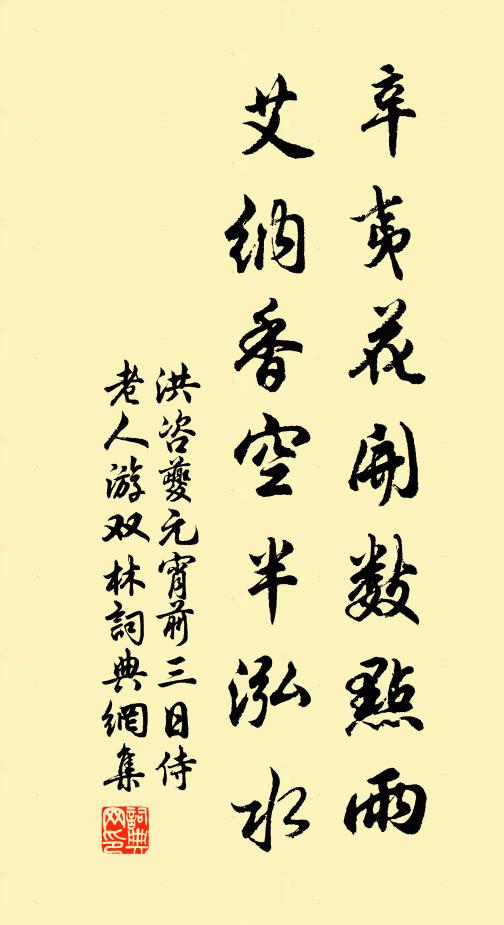 辛夷花開數點雨
艾納香空半泓水
洪咨夔元宵前三日侍
老人游双林詞典網集
詞典网印